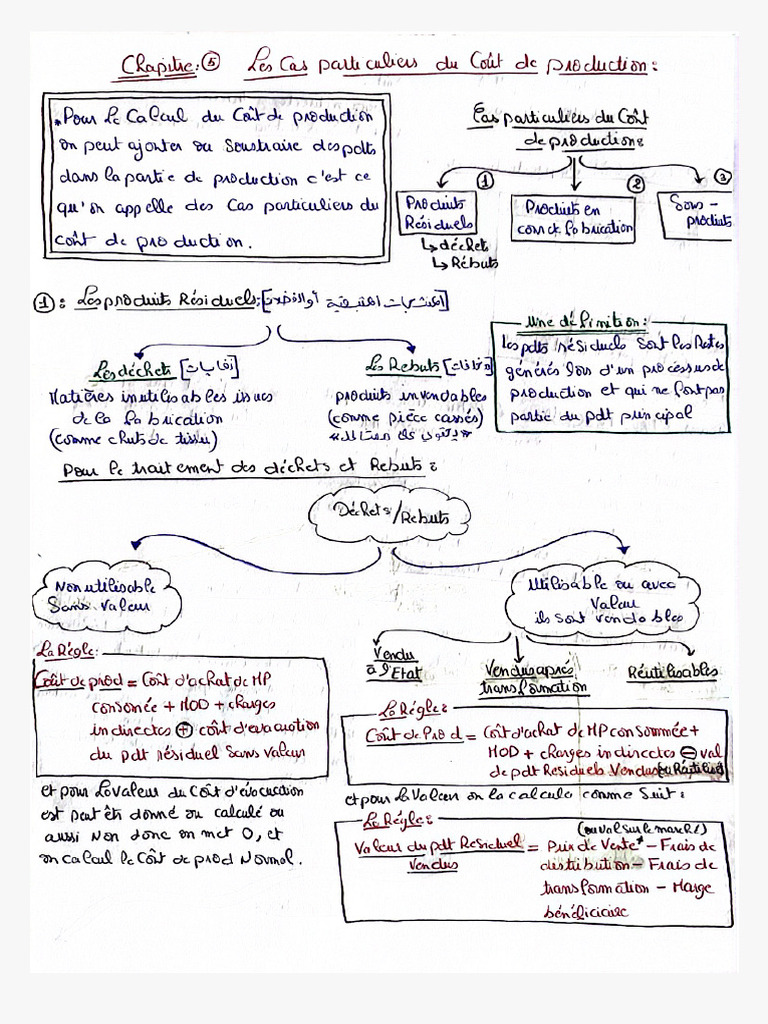 Chapitre: 5 Les Cas particuliers du Coût de production:
*Pour le Calcul du Coût de production
on peut ajouter ou soustraire des pdts
dans la partie de production c'est ce
qu'on appelle des Cas particuliers du
coût de production.
Cas particuliers du Coût
de production:
1
2
3
Produits
Résiduels
↳ déchets
↳ Rebuts
Produits en
cours de fabrication
Sous-
produits
1: Les produits Résiduels:
Une définition:
les pdts résiduels sont les Restes
générés lors d'un processus de
production et qui ne font pas
partie du pdt principal
Les déchets [نفايات]
Matières inutilisables issues
de la fabrication
(comme chuts de tissu)
Les Rebuts
produits invendables
(comme pièce cassés)
Pour le traitement des déchets et Rebuts:
Déchets/Rebuts
Non utilisable
Sans Valeur
Utilisable ou avec
Valeur
ils sont vendables
La Règle:
Coût de prod = Coût d'achat de MP
consomée + MOD + charges
indirectes + coût d'evacuation
du pdt résiduel Sans Valeur
et pour la valeur du Coût d'évacuation
est peut êtr donné ou calculé ou
aussi Non donc on met 0, et
on calcul le Coût de prod Normal.
Vendu
à l'Etat
Vendus après
transformation
Réutilisables
La Règle:
Coût de Prod = Coût d'achat de MP consommée +
MOD + charges indirectes - val
de pdt Residuels Vendus ou Réutilisé
et pour la Valeur on la calcule comme Suit:
La Règle:
(ou val sur le marché)
Valeur du pdt Residuel = Prix de Vente* - Frais de
Vendus
distribution - Frais de
transformation - Marge
bénéficiaire